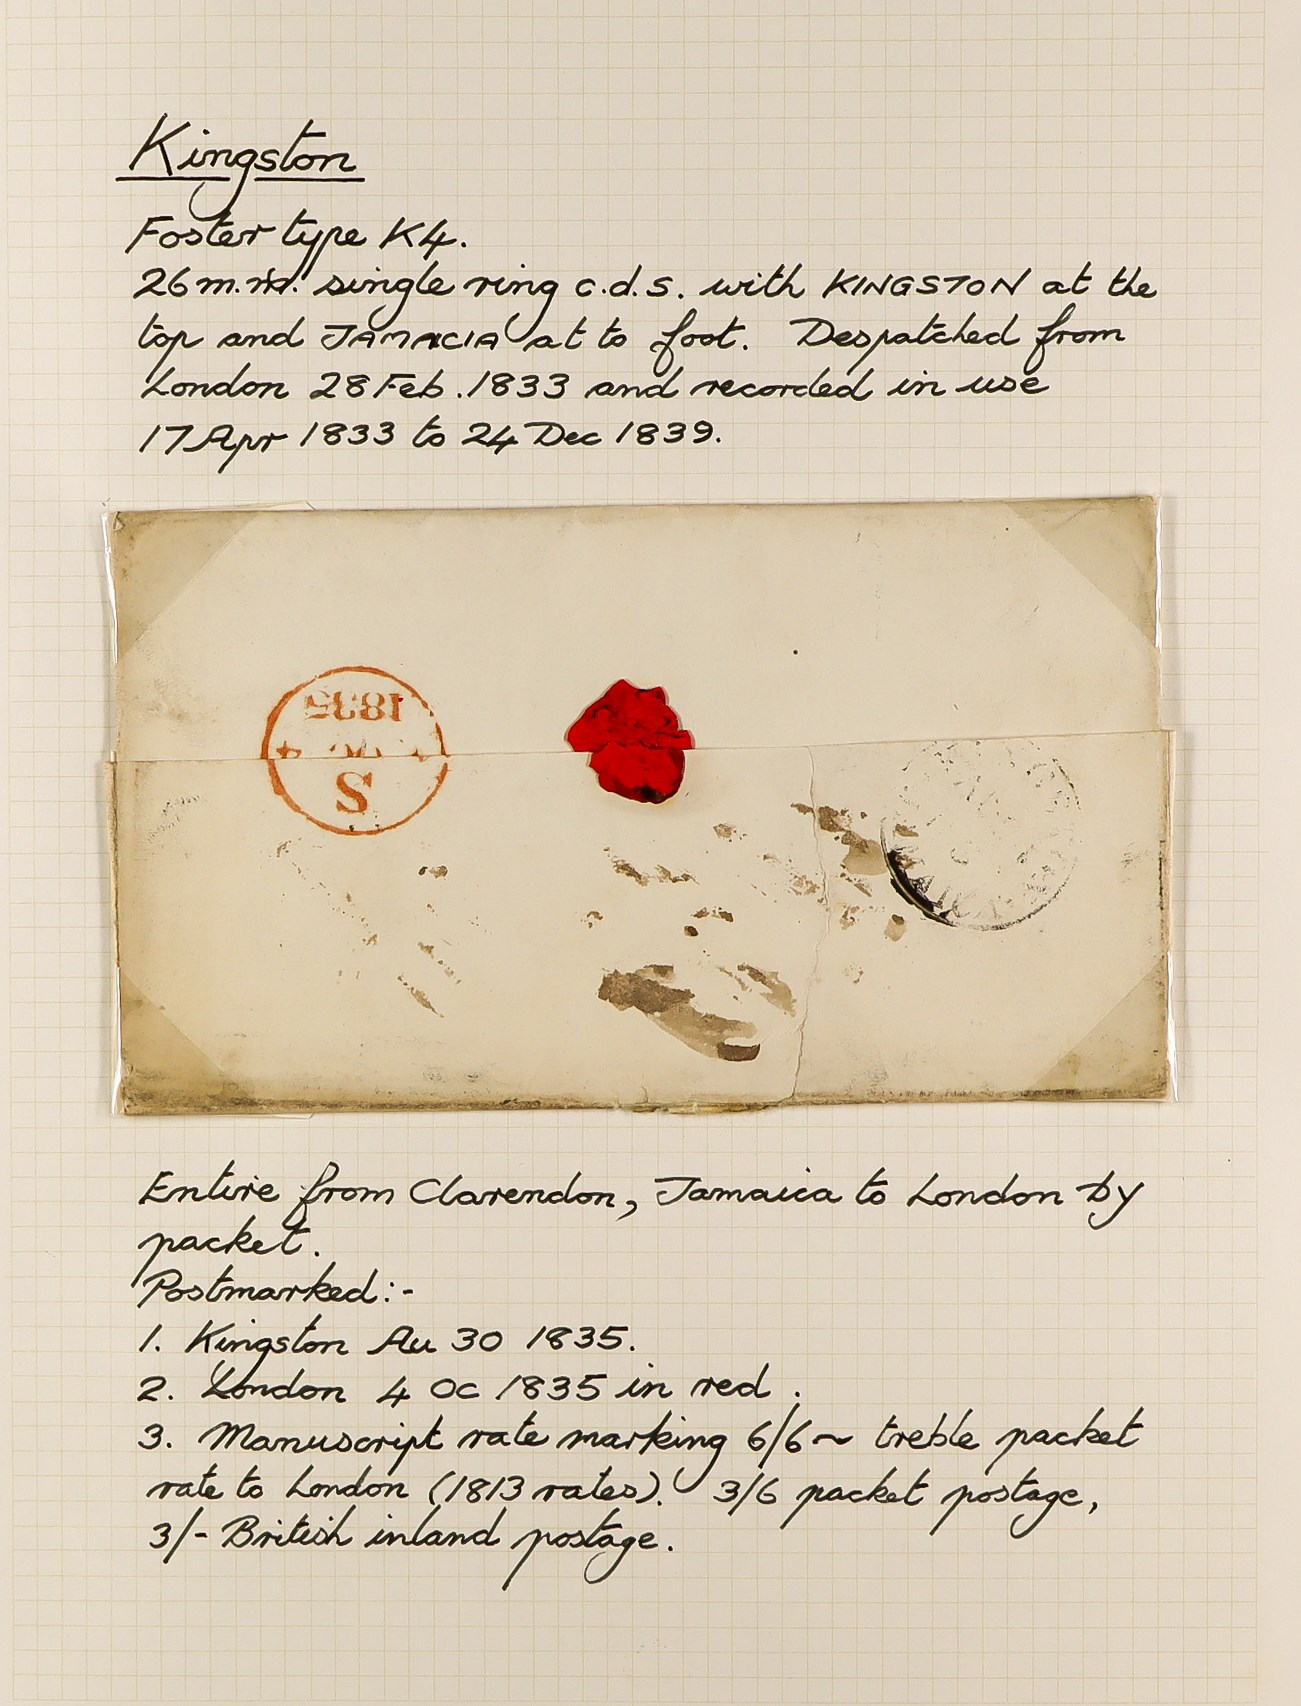 Kingston
Foster type K4.
26 m.m. single ring c.d.s. with KINGSTON at the
top and JAMACIA at to foot. Despatched from
London 28 Feb. 1833 and recorded in use
17 Apr 1833 to 24 Dec 1839.
1835
S
Entire from Clarendon, Jamaica to London by
packet.
Postmarked:-
1. Kingston Au 30 1835.
2. London 4 Oc 1835 in red.
3. Manuscript rate marking 6/6 ~ treble packet
rate to London (1813 rates). 3/6 packet postage,
3/- British inland postage.